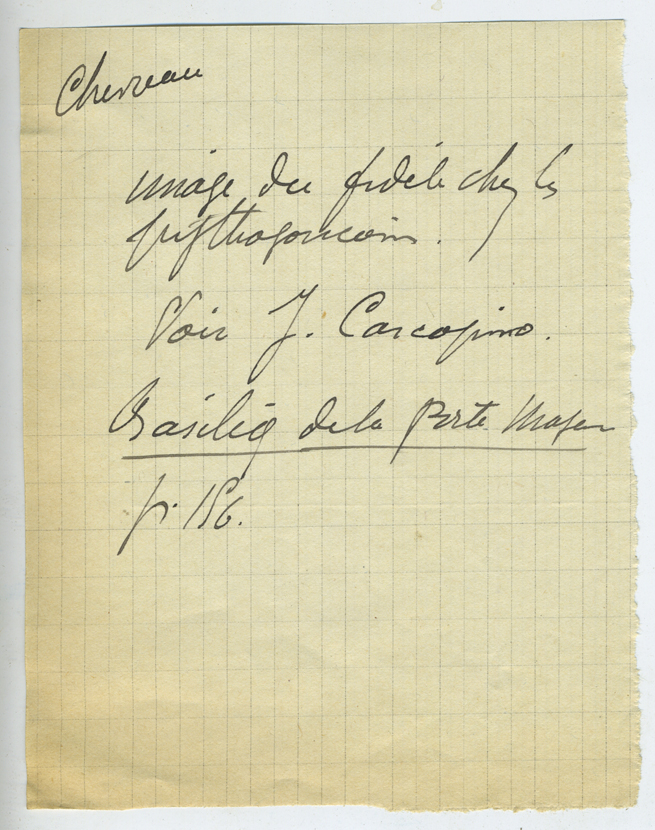 Chevreau
image du fidèle chez les
pythagoriciens.
Voir J. Carcopino.
Basiliq de la Porte Majeur
p. 156.